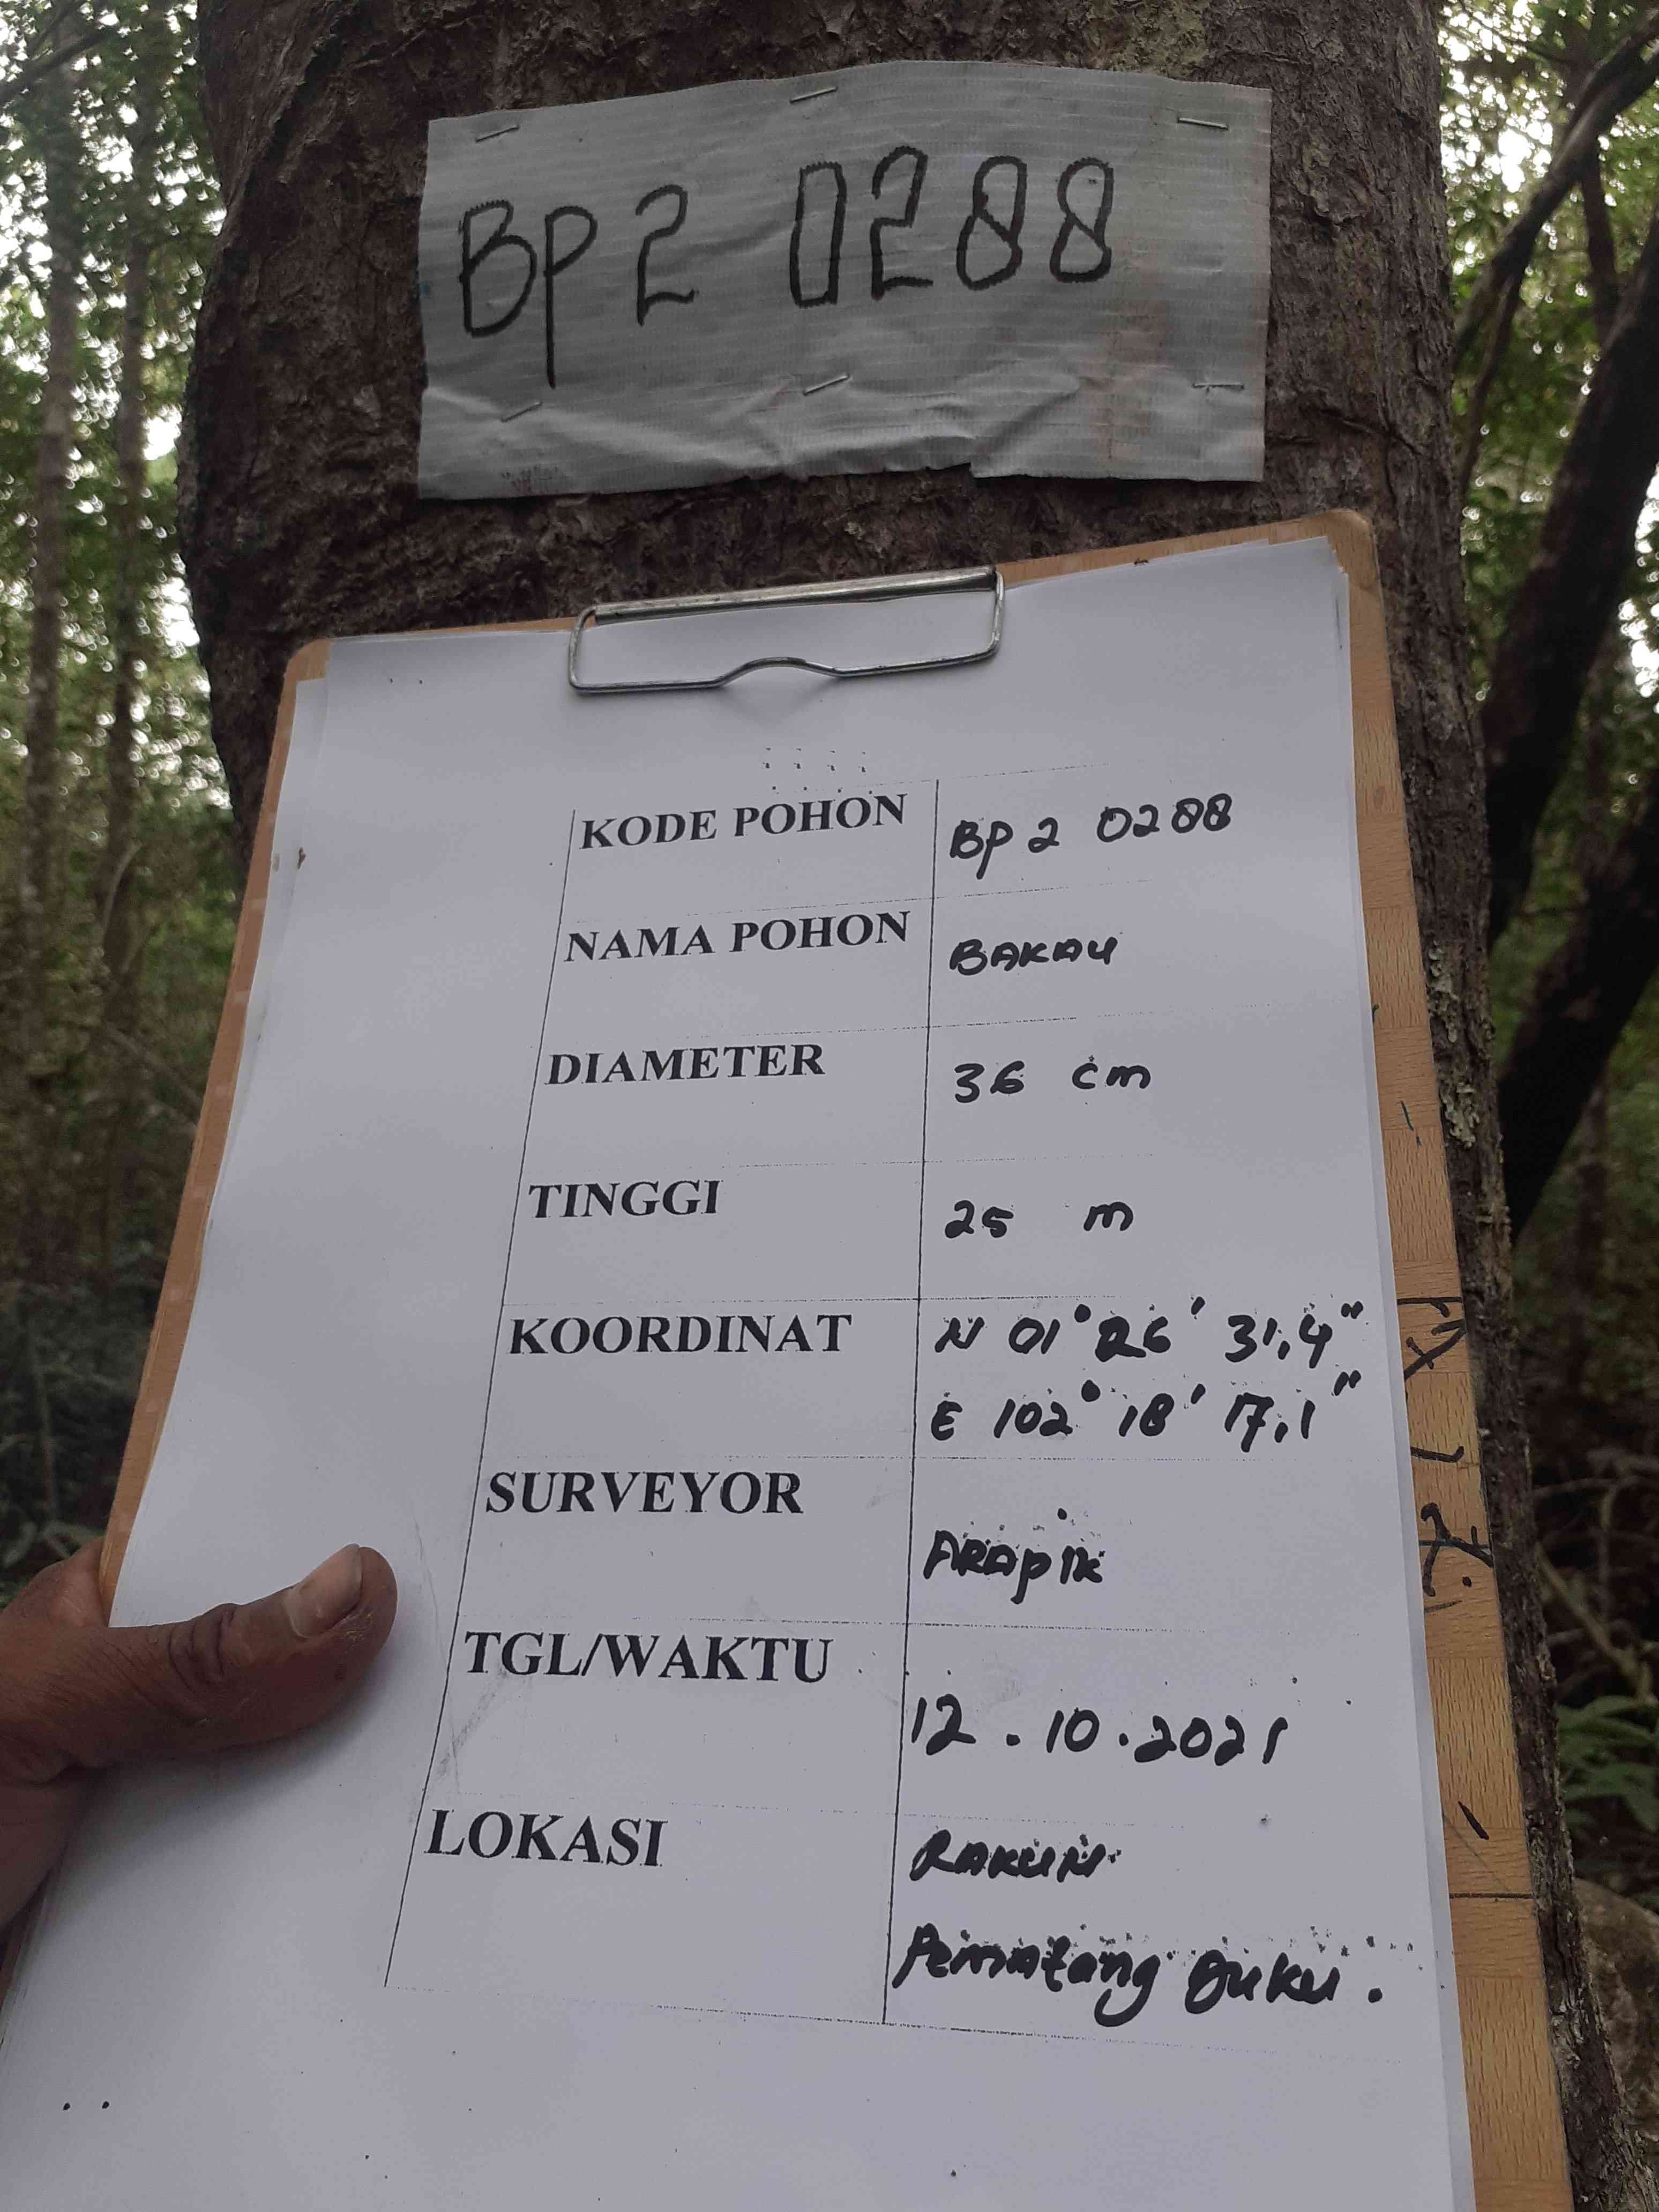 BP2 0288
KODE POHON BP2 0288
NAMA POHON BAKAU
DIAMETER 36 cm
TINGGI 25 m
KOORDINAT N 01° 26' 31,4"
E 102° 18' 17,1"
SURVEYOR ARAPIK
TGL/WAKTU 12.10.2021
LOKASI
Pematang Duku.